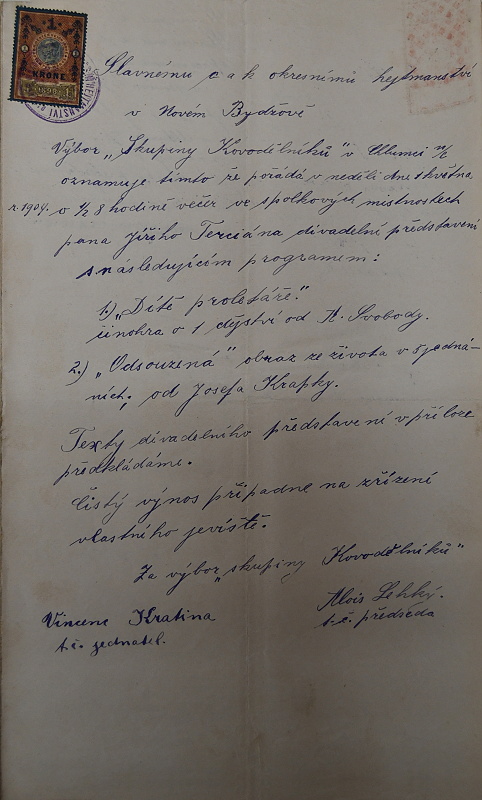 1
KRONE
Slavnému c a k okresnímu hejtmanství
v Novém Bydžově
Výbor „Skupiny Kovodělníků" v Chlumci n/C
oznamuje tímto že pořádá v neděli dne 1 května
r. 1904. o ½ 8 hodině večer ve spolkových místnostech
pana Jiřího Terciána divadelní představení
s následujícím programem:
1.) „Dítě proletáře."
činohra o 1 dějství od A. Svobody.
2.) „Odsouzená" obraz ze života v 5 jedná-
ních, od Josefa Krapky.
Texty divadelního představení v příloze
předkládáme.
Čistý výnos připadne na zřízení
vlastního jeviště.
Za výbor „skupiny Kovodělníků"
Alois Lehký.
t.č. předseda
Vincenc Kratina
t.č. jednatel.